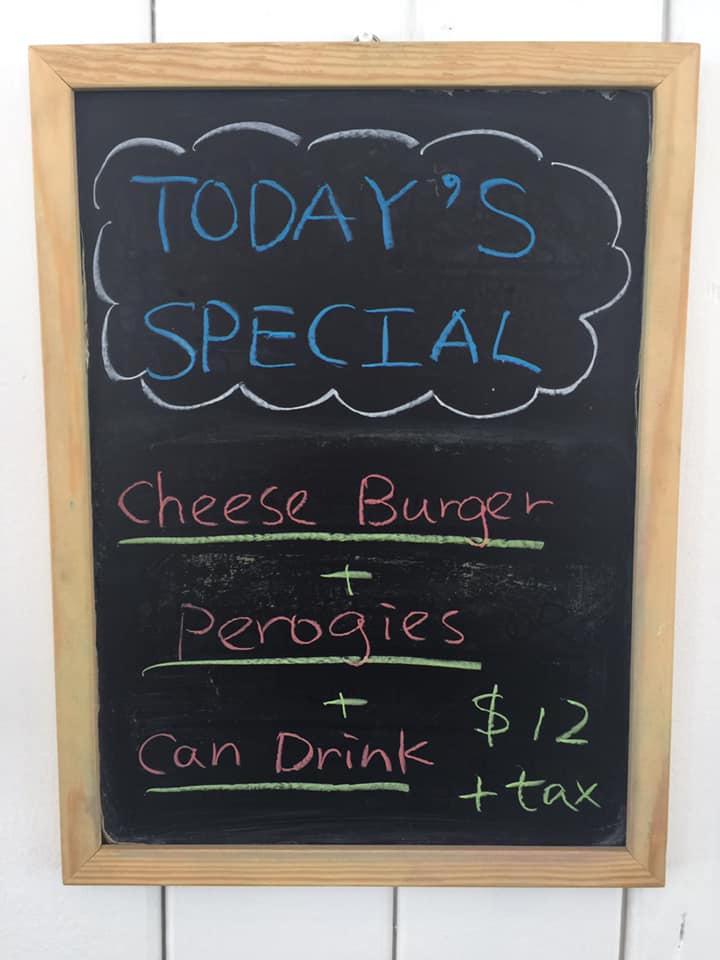 TODAY'S
SPECIAL
Cheese Burger
+
Perogies
+
Can Drink
$12
+ tax